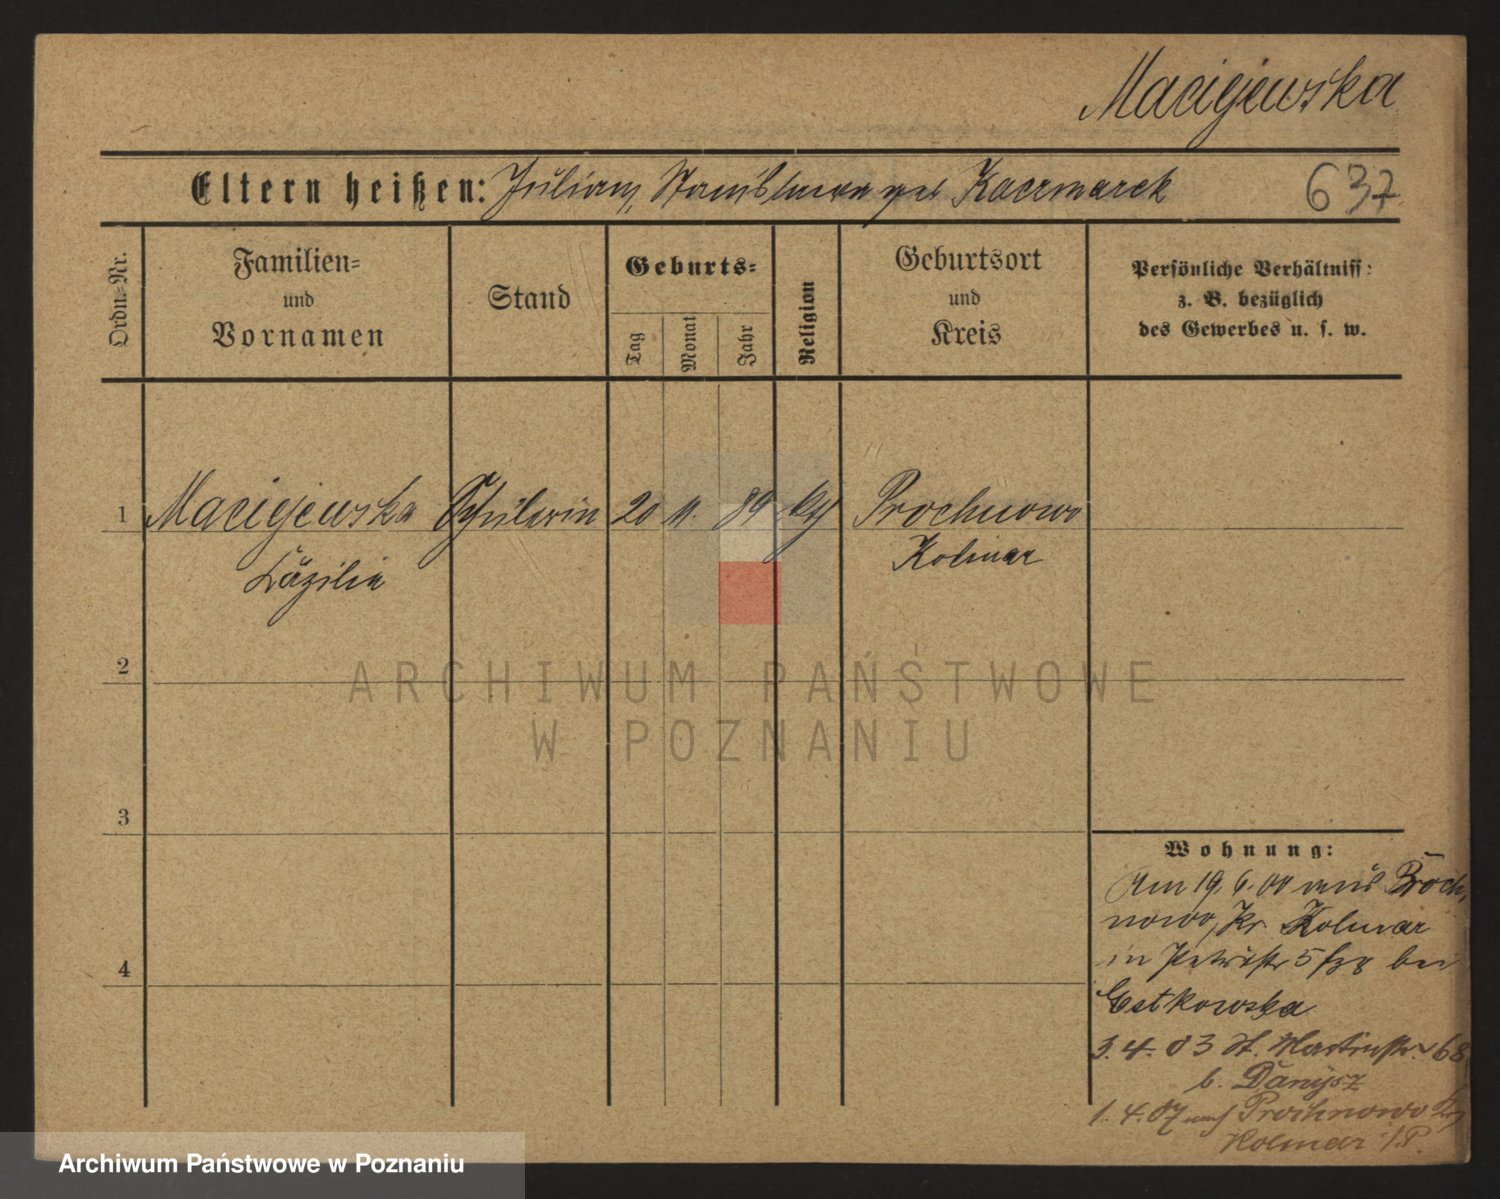 Maciejewska
Eltern heißen: Julian, Stanislawa geb Kacrmarek
637
Ordn.-Nr.
Familien-
und
Vornamen
Stand
Geburts-
Tag
Monat
Jahr
Religion
Geburtsort
und
Kreis
Persönliche Verhältniss:
z. B. bezüglich
des Gewerbes u. s. w.
1 Maciejewska Schülerin 20 11. 89 Prochnowo
Cäzilie Kolmar
2
3
4
Wohnung:
Am 19. 6. 00 aus Proch
nowo, Kr. Kolmar
in Petristr 5 bei
Estkowska
3. 4. 03 St. Martinstr. 68
b. Danysz
1. 4. 07 nach Prochnowo
Kolmar i/P.
ARCHIWUM PAŃSTWOWE
W POZNANIU
Archiwum Państwowe w Poznaniu